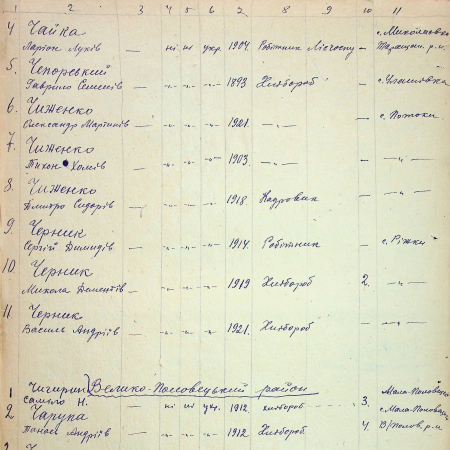 1 2 3 4 5 6 7 8 9 10 11
4 Чайка с. Миколаївка
Ларіон Луків — ні ні укр. 1904. Робітник Лісгоспу — Таращан. р-н
5. Чепорський
Гаврило Семенів — -"- -"- -"- 1893 Хлібороб — с.
6. Чиженко
Олександр Мартинів — -"- -"- -"- 1921. —"— — с. Потоки
7. Чиженко
Тихон Хомів — -"- -"- -"- 1903. —"— — —"—
8. Чиженко
Дмитро Сидорів — -"- -"- -"- 1918. Кадровик — —"—
9. Черник
Сергій Демидів — -"- -"- -"- 1914. Робітник — с. Ріжки
10 Черник
Микола Дементів — -"- -"- -"- 1919 Хлібороб 2. —"—
11. Черник
Василь Андріїв — -"- -"- -"- 1921. Хлібороб — —"—
1 Чигирин Велико-Половецький район Мала-Половецьк
Самійло Н. — ні ні укр. 1912. хлібороб 3. с. Мала-Половецьк
2 Чапука
Панас Андріїв — -"- -"- -"- 1912. Хлібороб 4. В/Полов. р-н